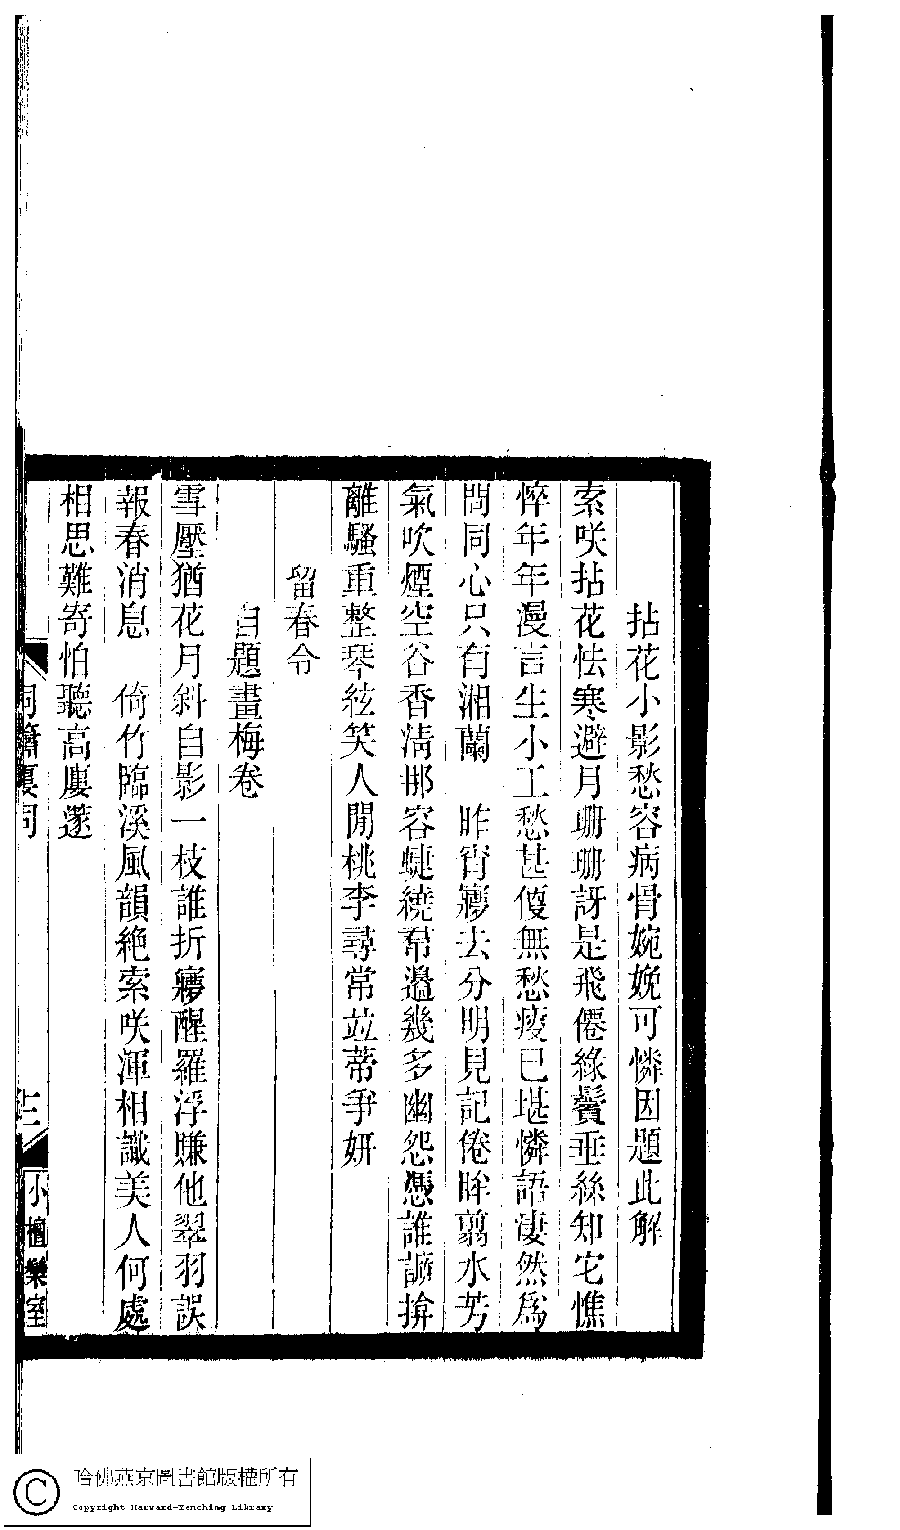 拈花小影愁容病骨婉娩可憐因題此解
索咲拈花怯寒避月珊珊訝是飛僊綠鬢垂絲知宅憔
悴年年漫言生小工愁甚傻無愁瘦已堪憐語淒然爲
問同心只有湘蘭　昨宵㝱去分明見記倦眸翦水芳
氣吹煙空谷香淸那容蜨繞帬邊幾多幽怨憑誰諦拚
離騷重整琴絃笑人閒桃李尋常竝蒂爭妍
留春令
自題畫梅卷
雪壓猶花月斜自影一枝誰折㝱醒羅浮賺他翠羽誤
報春消息　倚竹臨溪風韻絕索咲渾相識美人何處
相思難寄怕聽高廔篴
洞簫廔詞
小檀欒室
哈佛燕京圖書館版權所有
Copyright Harvard-Yenching Library